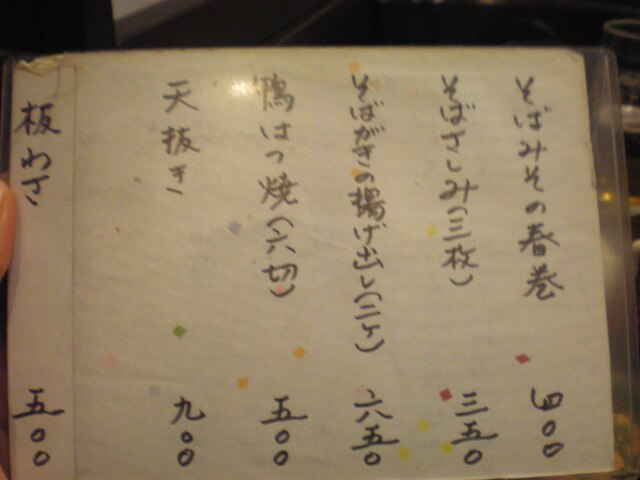 そばみその春巻 四〇〇
そばさしみ(三枚) 三五〇
そばがきの揚げ出し(二ケ) 六五〇
鴨はつ焼(六切) 五〇〇
天抜き 九〇〇
板わさ 五〇〇